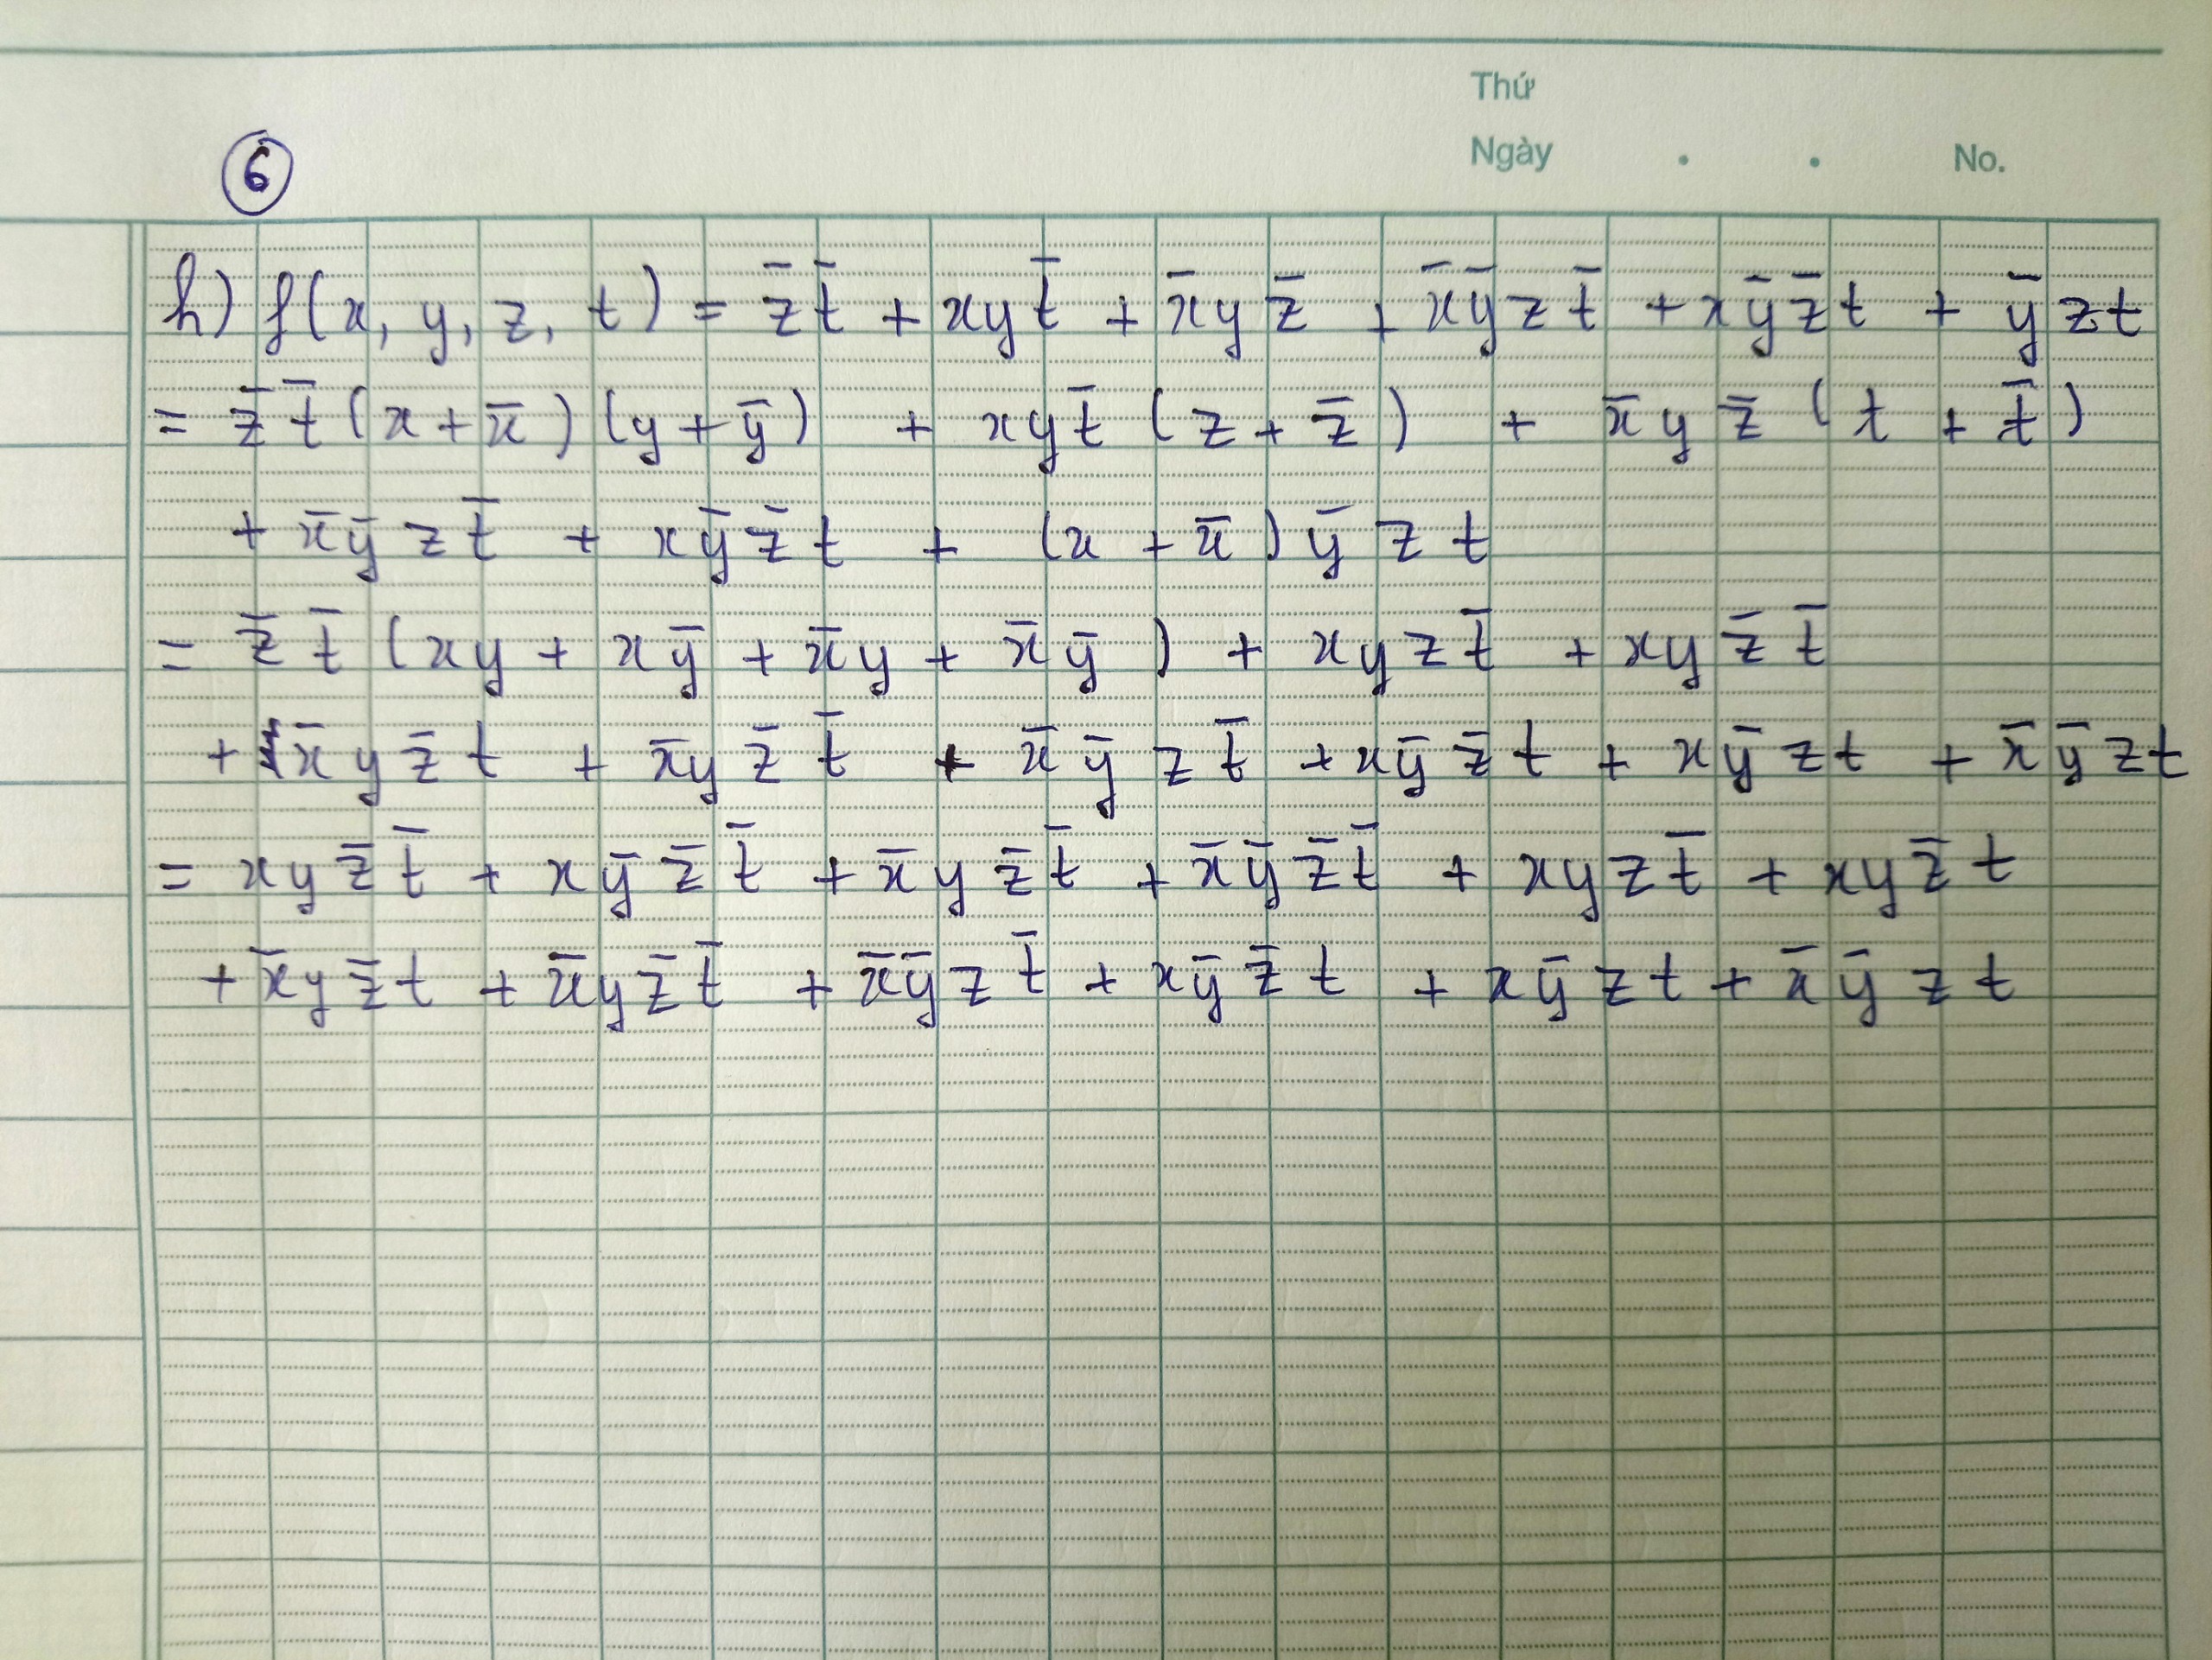 Thứ
Ngày . . No.
6
h) f(x, y, z, t) = z̄ t̄ + xy t̄ + x̄ y z̄ + x̄ ȳ z t̄ + x ȳ z̄ t + ȳ z t
= z̄ t̄ (x + x̄) (y + ȳ) + xy t̄ (z + z̄) + x̄ y z̄ (t + t̄)
+ x̄ ȳ z t̄ + x ȳ z̄ t + (x + x̄) ȳ z t
= z̄ t̄ (xy + x ȳ + x̄ y + x̄ ȳ) + xyz t̄ + xy z̄ t̄
+ x̄ y z̄ t + x̄ y z̄ t̄ + x̄ ȳ z t̄ + x ȳ z̄ t + x ȳ z t + x̄ ȳ z t
= xy z̄ t̄ + x ȳ z̄ t̄ + x̄ y z̄ t̄ + x̄ ȳ z̄ t̄ + xyz t̄ + xy z̄ t
+ x̄ y z̄ t + x̄ y z̄ t̄ + x̄ ȳ z t̄ + x ȳ z̄ t + x ȳ z t + x̄ ȳ z t